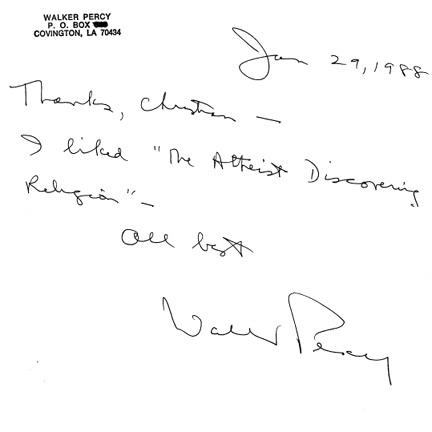 WALKER PERCY
P. O. BOX
COVINGTON, LA 70434
Jan 29, 1988
Thanks, Christian —
I liked "The Atheist Discovering
Religion" —
All best
Walker Percy